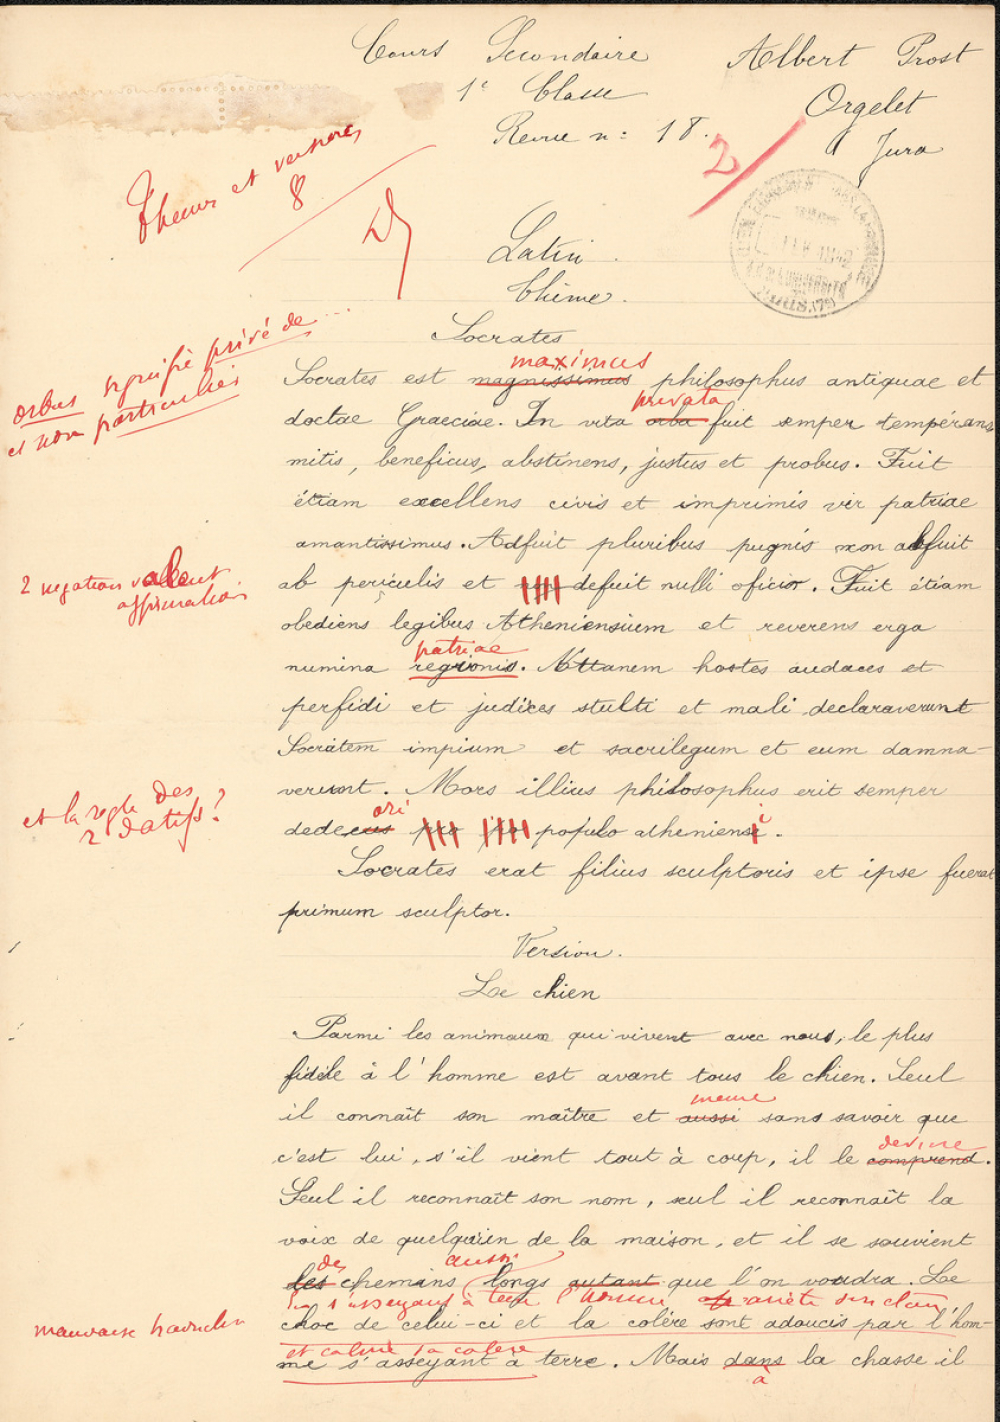 Cours Secondaire
Albert Prost
1e Classe
Orgelet
Revue n: 18.
Jura
2
Thèmes et versions
8
Latin
Thème.
Socrates
orbus signifie privé de...
et non particulier
maximus
Socrates est magnissimus philosophus antiquae et
privata
doctae Graeciae. In vita orba fuit semper tempérans
mitis, beneficus, abstinens, justus et probus. Fuit
étiam excellens civis et imprimis vir patriae
amantissimus. Adfuit pluribus pugnis non abfuit
2 négations valent
affirmation
ab periculis et non defuit nulli oficior. Fuit étiam
obediens legibus Atheniensium et reverens erga
patriae
numina regionis. Attamem hostes audaces et
perfidi et judices stulti et mali declaraverunt
Socratem impium et sacrilegum et eum damna-
verunt. Mors illius philosophus erit semper
et la règle des
2 datifs?
ori
dedecus pro po populo atheniensi.
Socrates erat filius sculptoris et ipse fuerat
primum sculptor.
Version.
Le chien
Parmi les animaux qui vivent avec nous, le plus
fidèle à l'homme est avant tous le chien. Seul
meme
il connaît son maître et aussi sans savoir que
devine
c'est lui, s'il vient tout à coup, il le comprend.
Seul il reconnaît son nom, seul il reconnaît la
voix de quelqu'un de la maison, et il se souvient
de
aussi
les chemins longs autant que l'on voudra. Le
s'asseyant à terre l'homme arrête son élan,
choc de celui-ci et la colère sont adoucis par l'hom-
mauvaise traduction
et calme sa colère
me s'asseyant à terre. Mais dans la chasse il
à